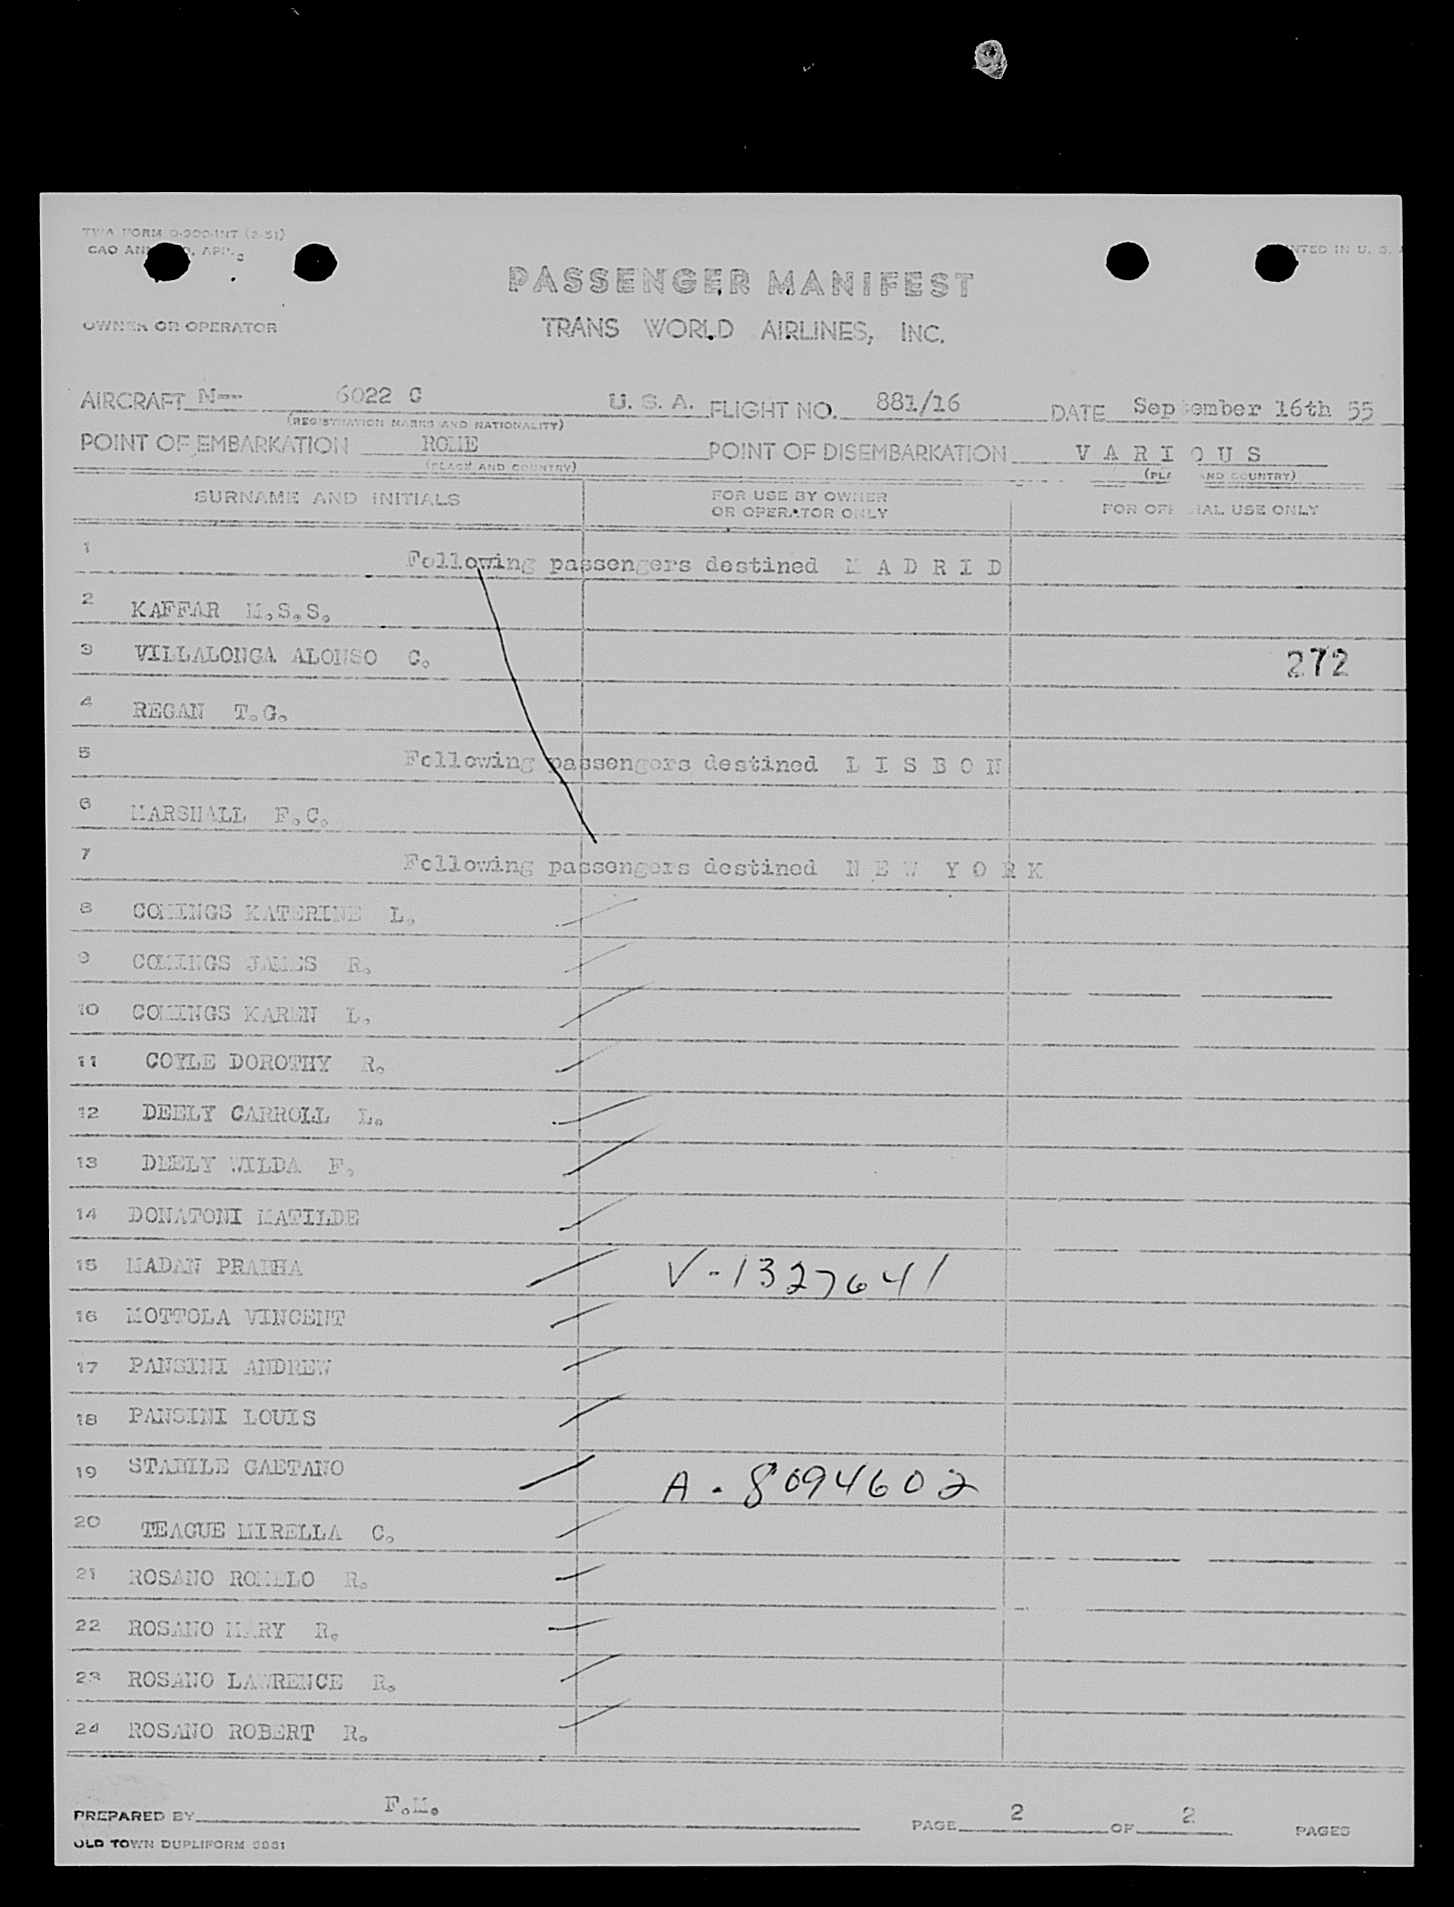 TWA FORM O-200-INT (2-51)
CAO
PRINTED IN U. S. A
PASSENGER MANIFEST
OWNER OR OPERATOR
TRANS WORLD AIRLINES, INC.
AIRCRAFT N-- 6022 C U. S. A. FLIGHT NO. 881/16 DATE September 16th 55
(REGISTRATION MARKS AND NATIONALITY)
POINT OF EMBARKATION ROME POINT OF DISEMBARKATION V A R I O U S
(PLACE AND COUNTRY) (PLACE AND COUNTRY)
SURNAME AND INITIALS FOR USE BY OWNER OR OPERATOR ONLY FOR OFFICIAL USE ONLY
1 Following passengers destined M A D R I D
2 KAFFAR M.S.S.
3 VILLALONGA ALONSO C. 272
4 REGAN T.G.
5 Following passengers destined L I S B O N
6 MARSHALL F.C.
7 Following passengers destined N E W Y O R K
8 COMINGS KATERINE L.
9 COMINGS JAMES R.
10 COMINGS KAREN L.
11 COYLE DOROTHY R.
12 DEELY CARROLL L.
13 DEELY WILDA F.
14 DONATONI MATILDE
15 MADAN PRABHA V-1327641
16 MOTTOLA VINCENT
17 PANSINI ANDREW
18 PANSINI LOUIS
19 STABILE GAETANO A-8094602
20 TEAGUE MIRELLA C.
21 ROSANO ROMELO R.
22 ROSANO MARY R.
23 ROSANO LAWRENCE R.
24 ROSANO ROBERT R.
PREPARED BY F.M. PAGE 2 OF 2 PAGES
OLD TOWN DUPLIFORM